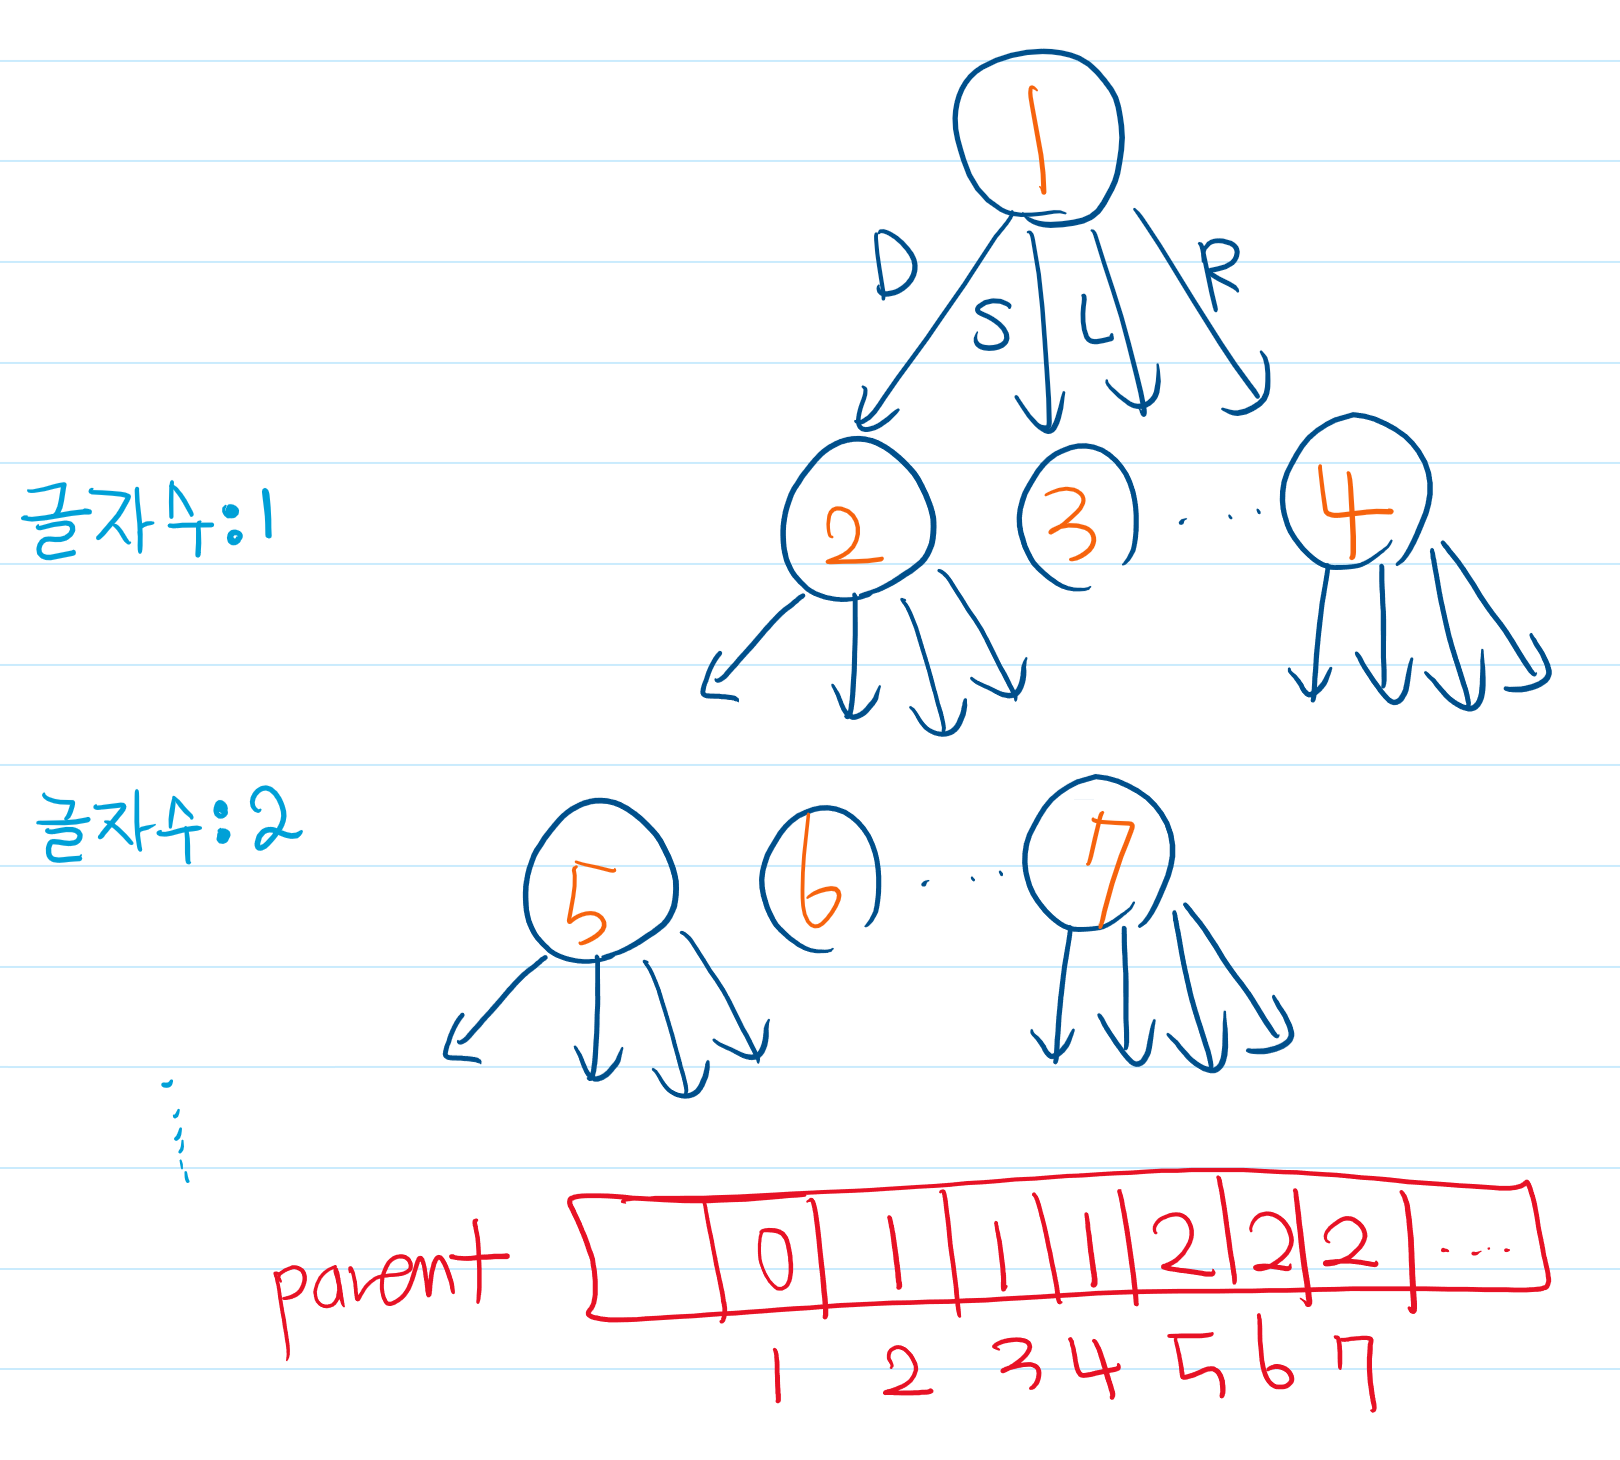 1
D S L R
글자수:1
2 3 .... 4
글자수:2
5 6 .... 7
parent 0 1 1 1 2 2 2 .....
1 2 3 4 5 6 7